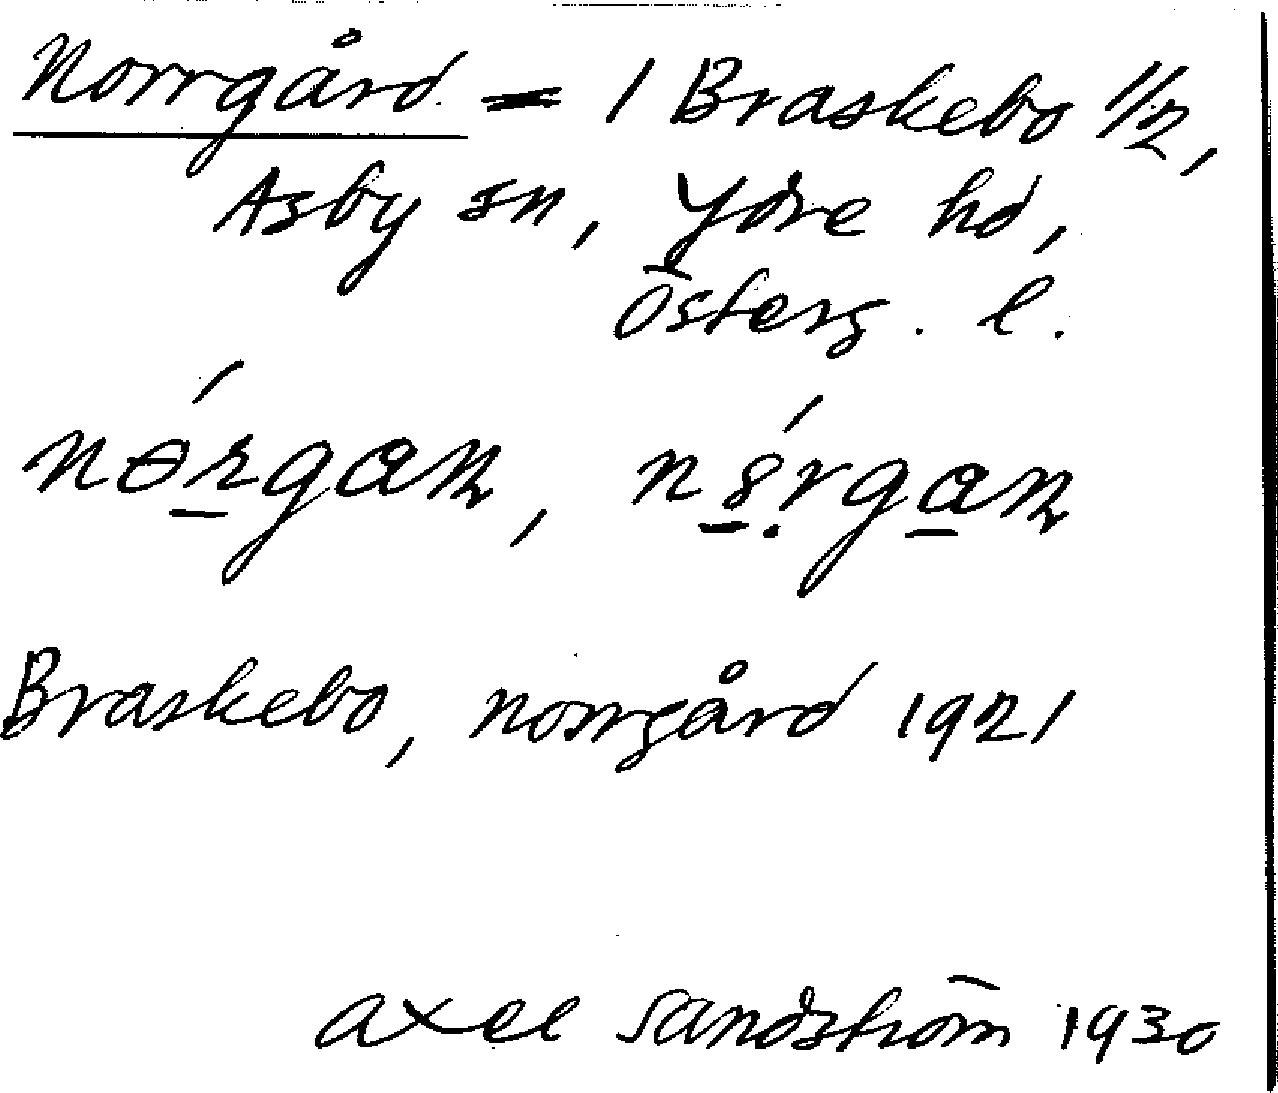 Norrgård = 1 Braskebo 1/2,
Asby sn, Ydre hd,
Österg. l.
Braskebo, norrgård 1921
Axel Sandström 1930